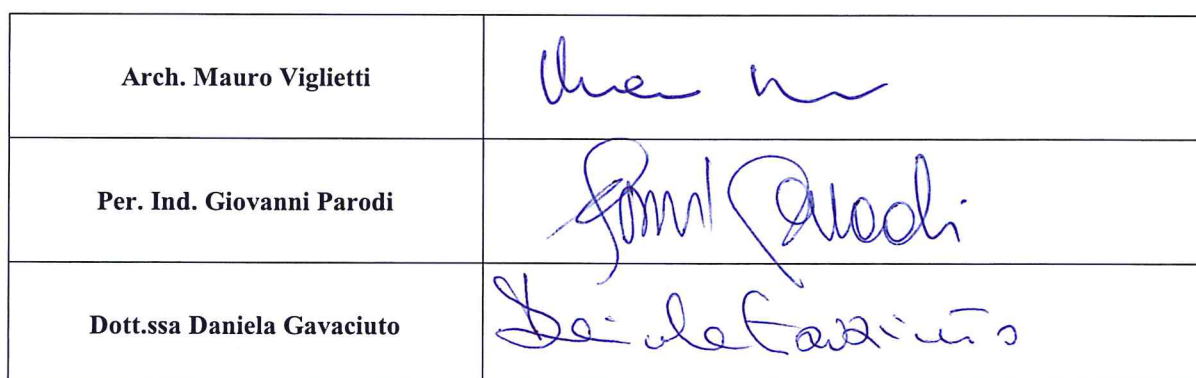 Arch. Mauro Viglietti
Per. Ind. Giovanni Parodi
Parodi
Dott.ssa Daniela Gavaciuto
Daniela Gavaciuto